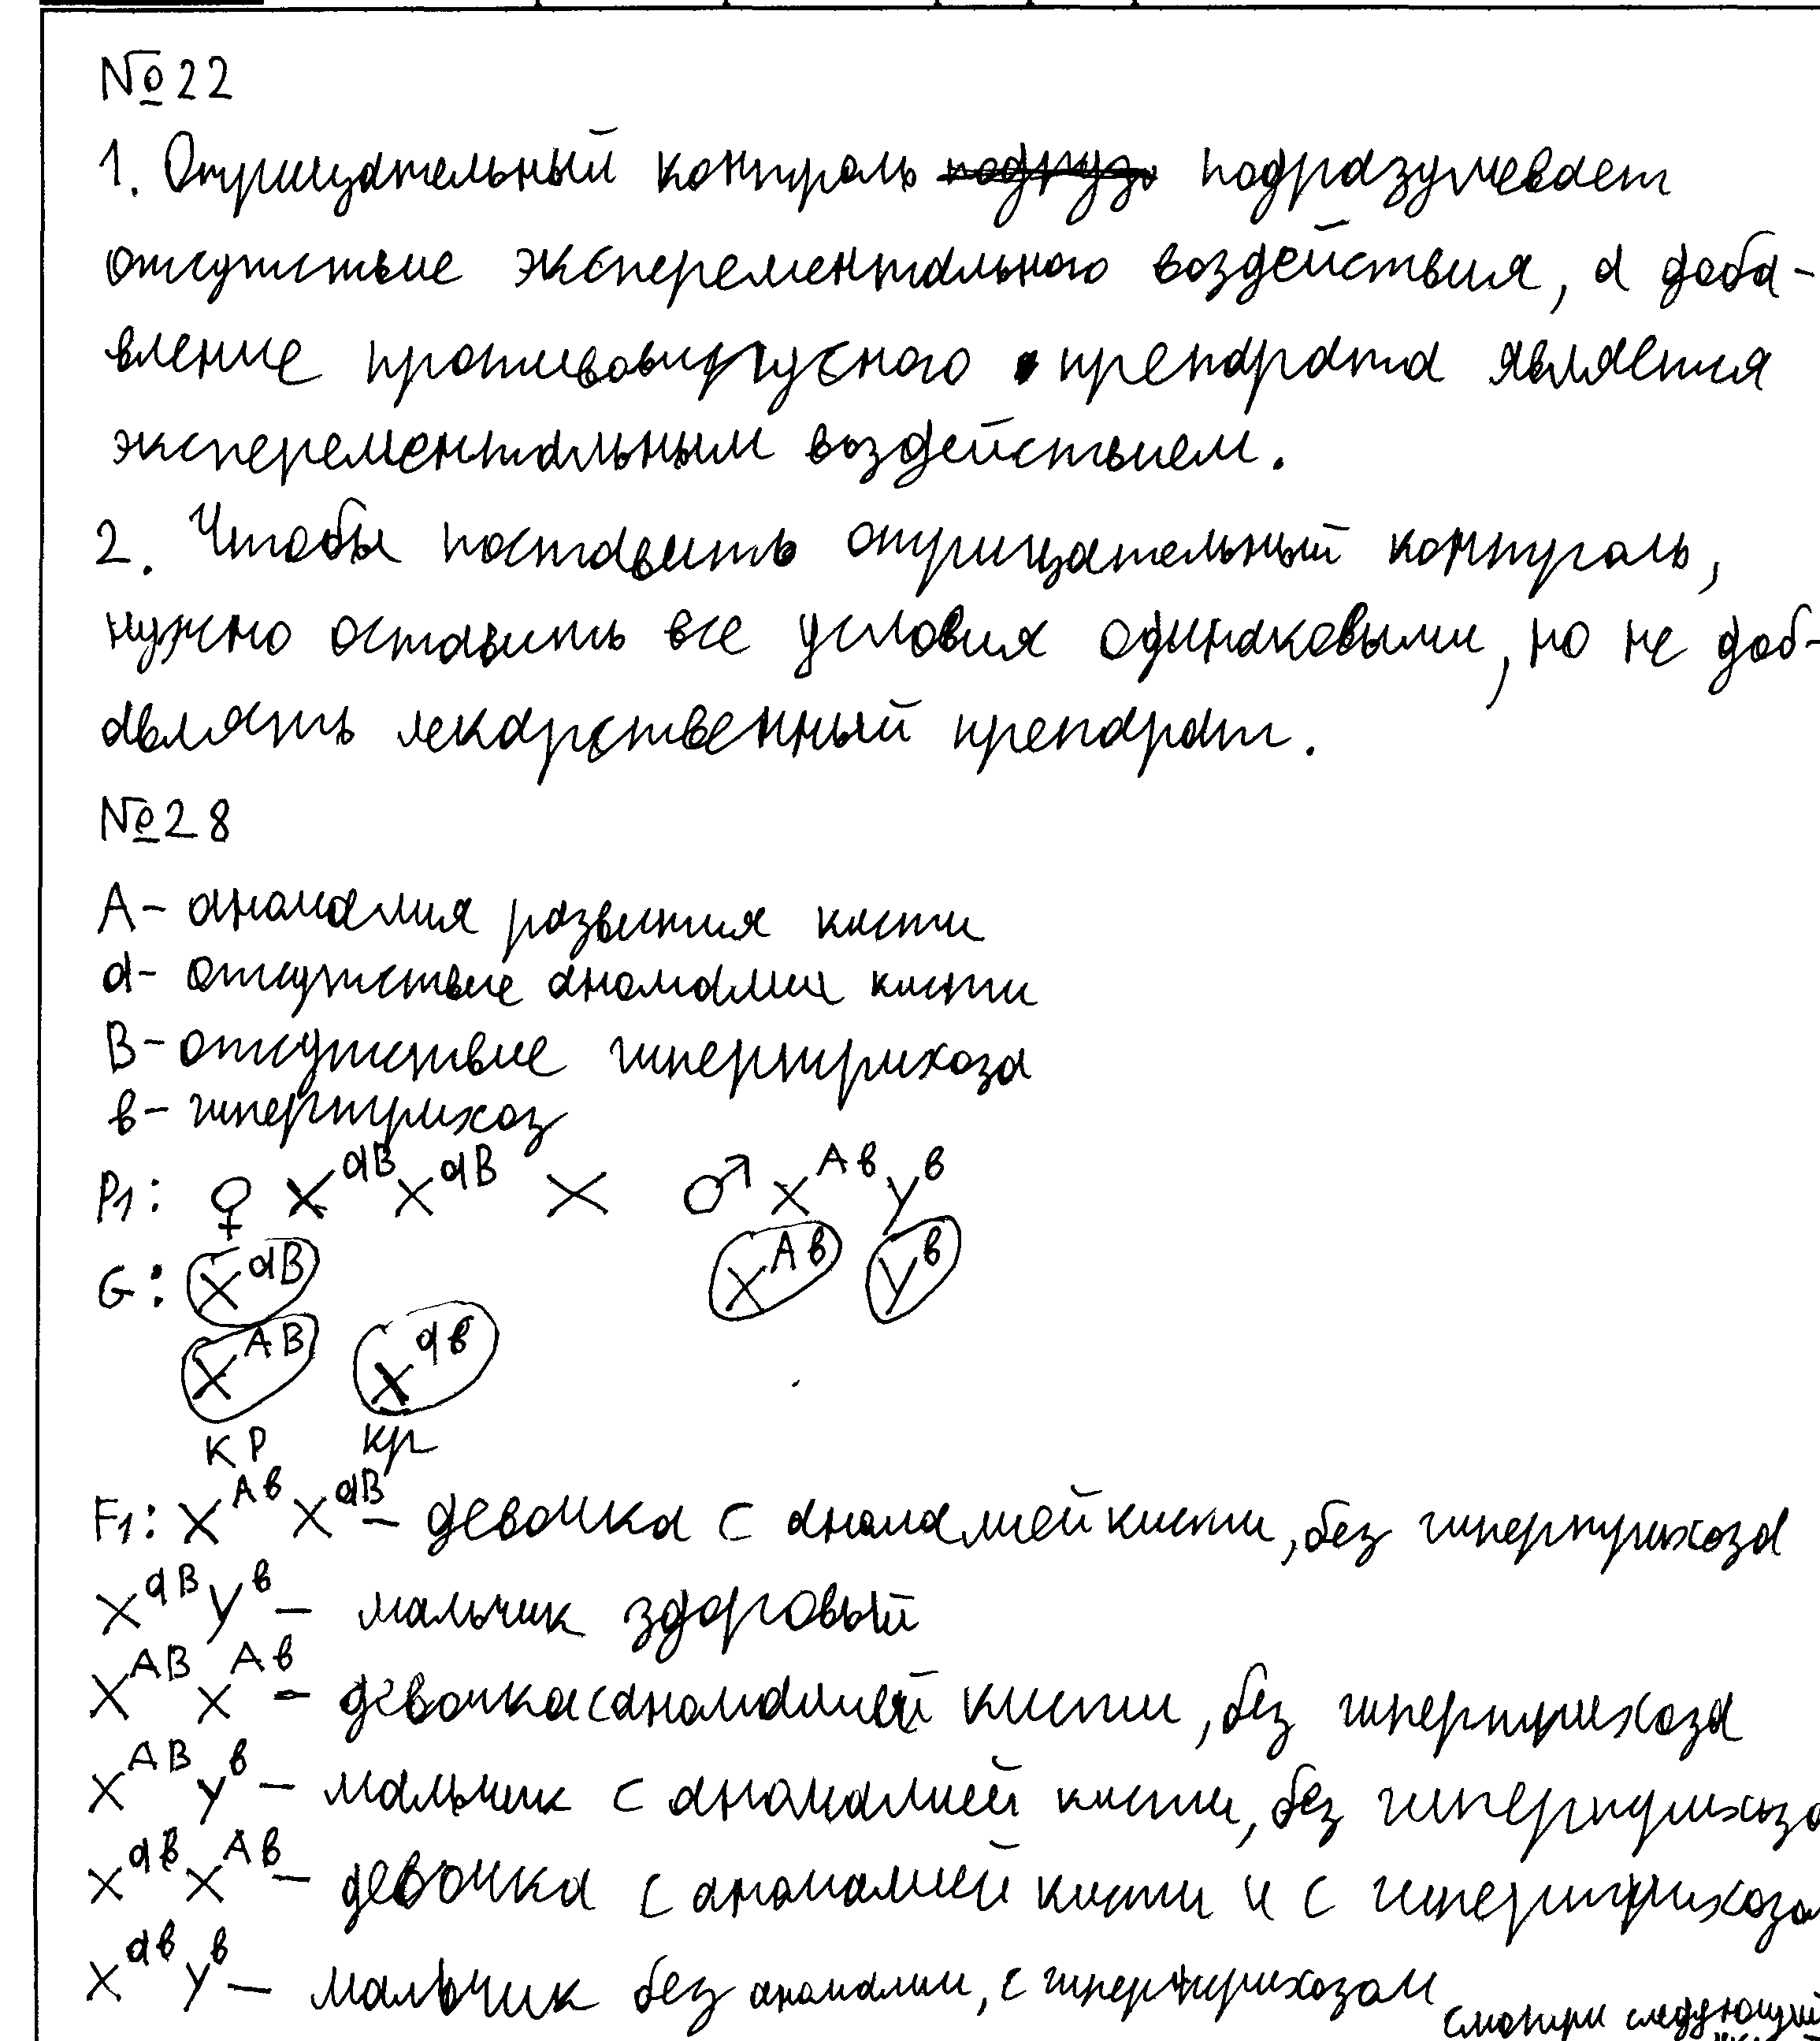 №22
1. Отрицательный контроль подразумевает
отсутствие эксперементального воздействия, а доба-
вление противовирусного препарата является
эксперементальным воздействием.
2. Чтобы поставить отрицательный контроль,
нужно оставить все условия одинаковыми, но не доб-
авлять лекарственный препарат.
№28
А- аномалия развития кисти
а- отсутствие аномалии кисти
В- отсутствие гипертрихоза
в- гипертрихоз
P1: ♀ X^aB X^aB × ♂ X^Aв Y^в
G: X^aB X^Aв Y^в
X^AB X^aв
КР кр
F1: X^Aв X^aB – девочка с аномалией кисти, без гипертрихоза
X^aB Y^в – мальчик здоровый
X^AB X^Aв – девочка с аномалией кисти, без гипертрихоза
X^AB Y^в – мальчик с аномалией кисти, без гипертрихоза
X^aв X^Aв – девочка с аномалией кисти и с гипертрихозом
X^aв Y^в – мальчик без аномалии, с гипертрихозом
смотри следующий